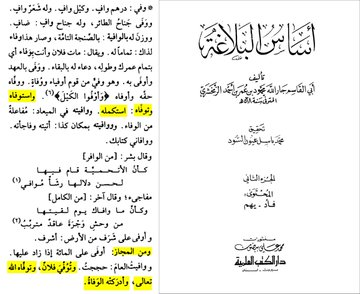 أساس البلاغة
تأليف
أبي القاسم جار الله محمود بن عمر بن أحمد الزمخشري
تحقيق
محمد باسل عيون السود
الجزء الثاني
المحتوى
فأد - يهم
منشورات
محمد علي بيضون
دار الكتب العلمية
وفي: درهم وافٍ. وكَيْل وافٍ. وله شَعَرٌ وافٍ.
ووفى جَناحُ الطائر، وله جناح وافٍ. ضافٍ.
ووَزَنَ له بالوافية: بالصنجة التامّة، وصار هذا وفاء
لذاك: تماماً له. ويقال: مات فلان وأنت بوفاء أي
بتمام عمرك وطوله، دعاء له بالبقاء. ووفى بالعهد
وأوفى به. وهو وفيٌّ من قوم أوفياء ووُفاة. ووفّاه
حقّه وأوفاه ﴿وَأَوْفُوا الكَيْلَ﴾(٦). واستوفاه
وتوفّاه: استكمله. ووافيته في الميعاد: مُفاعَلة
من الوفاء. ووافيته بمكان كذا: أتيته وفاجأته.
ووافاني كتابك.
وقال بشر: [من الوافر]
كأنّ الأتحميّة قام فيها
لحسن دلالها رشأ مُوافي(١)
مفاجىء؛ وقال آخر: [من الكامل]
وكأنّما وافاك يوم لقيتها
من وحش وَجْرَةَ عاقدٌ متربّبُ(٢)
وأوفى على شَرَف من الأرض: أشرف.
ومن المجاز: أوفى على المائة إذا زاد عليها.
ووافيتُ العامَ: حججتُ. وتُوُفّيَ فلان، وتوفّاه الله
تعالى، وأدركتْه الوفاةُ.